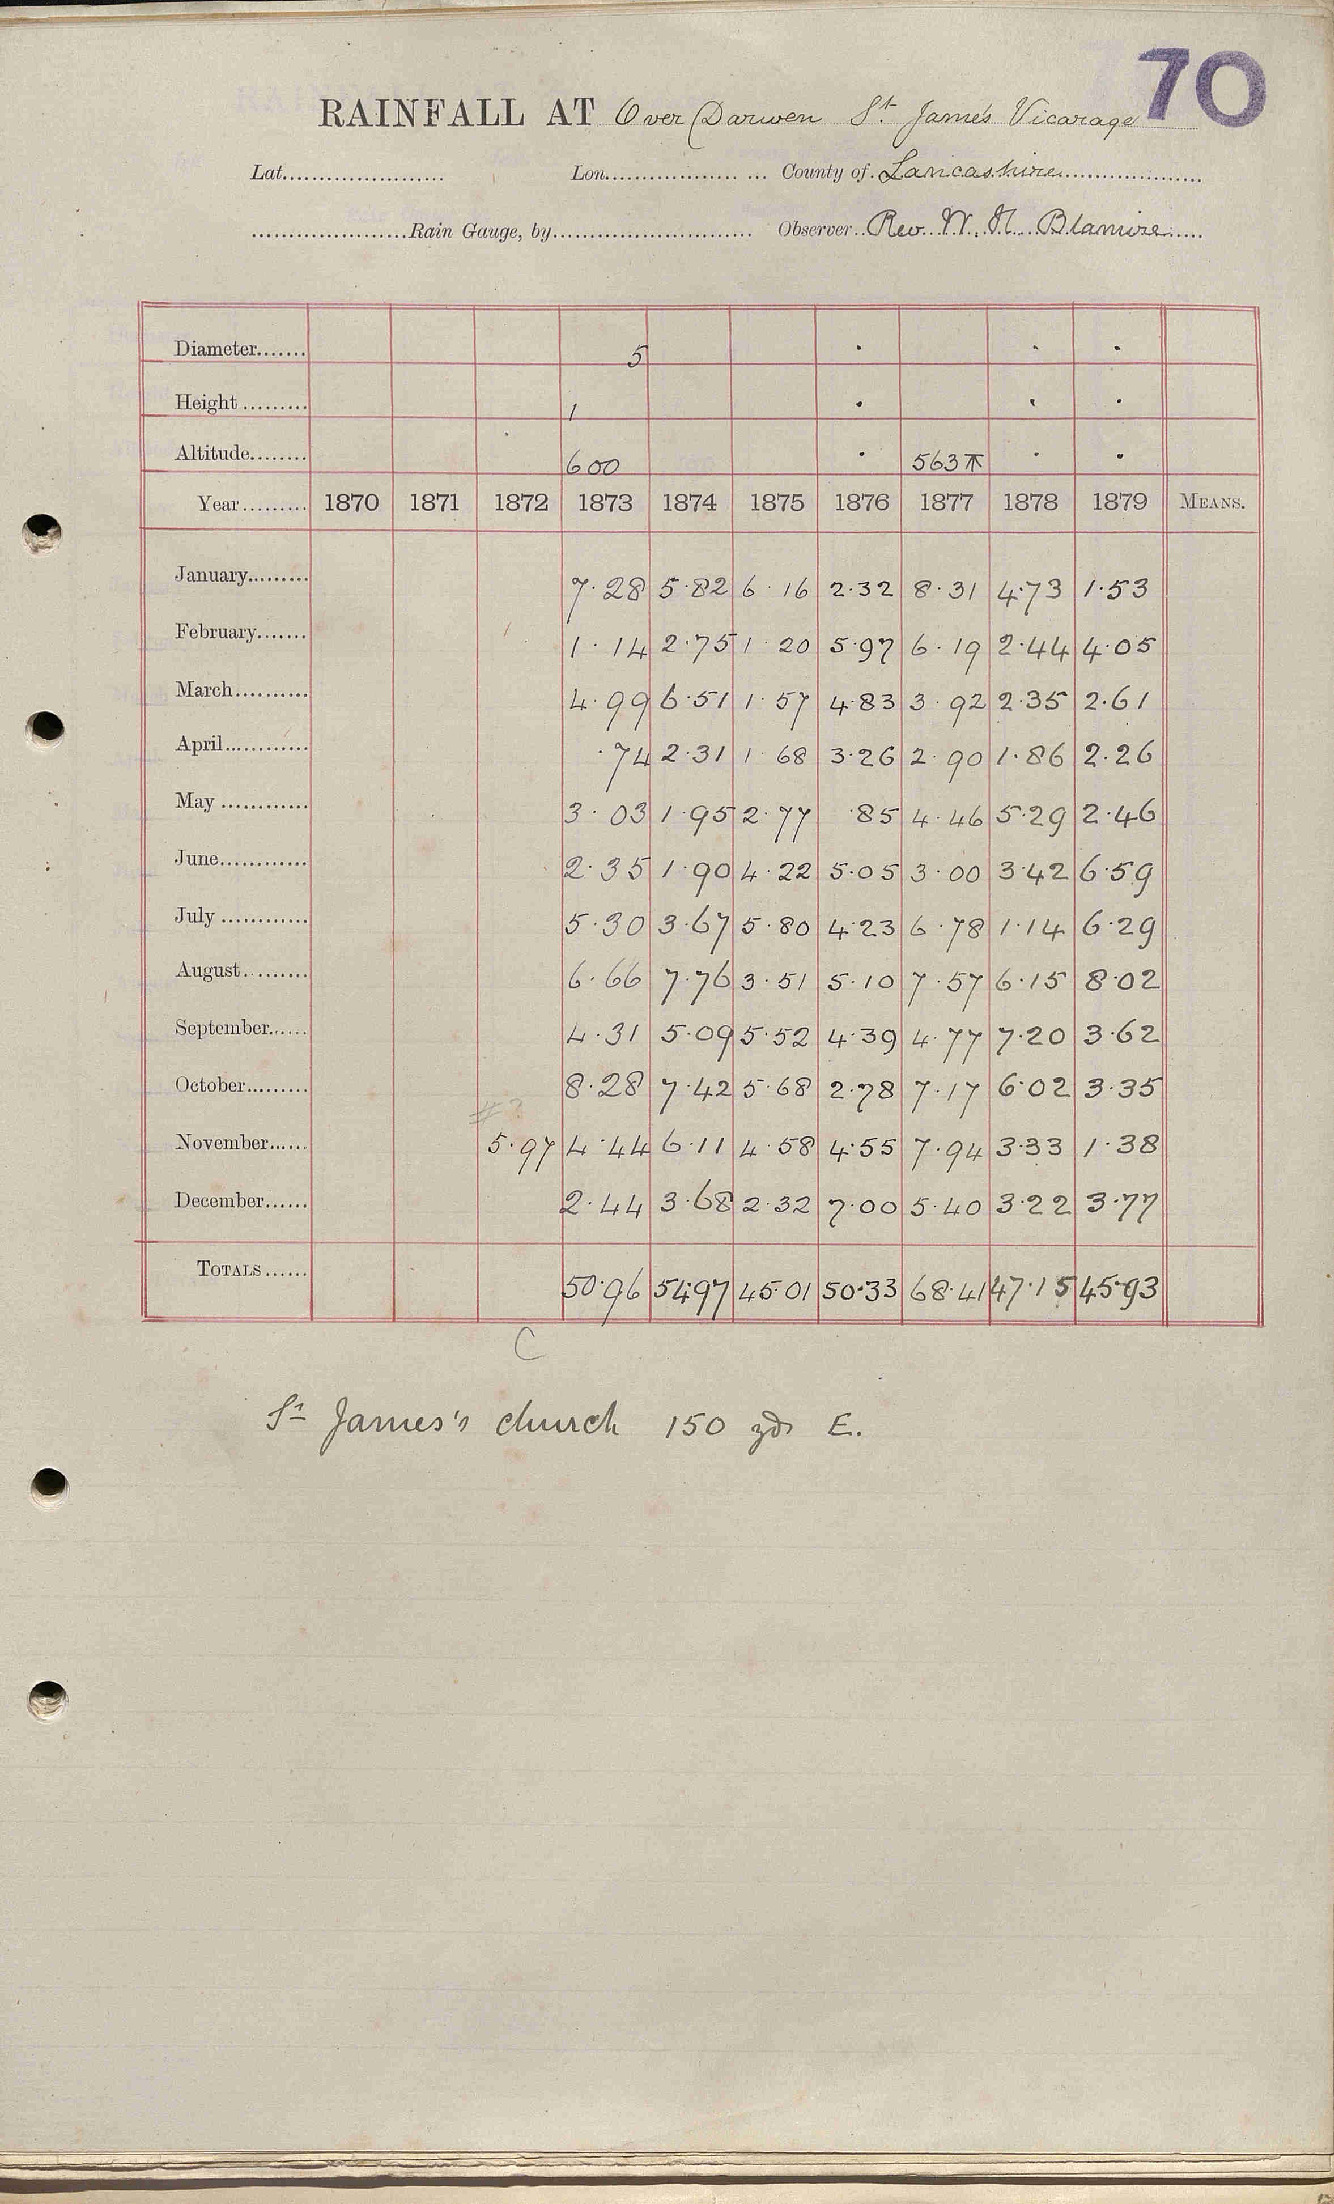 70
RAINFALL AT Over Darwen St. James Vicarage
Lat. Lon. County of Lancashire
Rain Gauge, by Observer Rev. W. H. Blamire
Diameter 5 . . .
Height 1 . . .
Altitude 600 . 563 . .
Year 1870 1871 1872 1873 1874 1875 1876 1877 1878 1879 MEANS.
January 7.28 5.82 6.16 2.32 8.31 4.73 1.53
February 1.14 2.75 1.20 5.97 6.19 2.44 4.05
March 4.99 6.51 1.57 4.83 3.92 2.35 2.61
April .74 2.31 1.68 3.26 2.90 1.86 2.26
May 3.03 1.95 2.77 .85 4.46 5.29 2.46
June 2.35 1.90 4.22 5.05 3.00 3.42 6.59
July 5.30 3.67 5.80 4.23 6.78 1.14 6.29
August 6.66 7.76 3.51 5.10 7.57 6.15 8.02
September 4.31 5.09 5.52 4.39 4.77 7.20 3.62
October 8.28 7.42 5.68 2.78 7.17 6.02 3.35
November 5.97 4.44 6.11 4.58 4.55 7.94 3.33 1.38
December 2.44 3.68 2.32 7.00 5.40 3.22 3.77
TOTALS 50.96 54.97 45.01 50.33 68.41 47.15 45.93
C
St James's church 150 yds E.